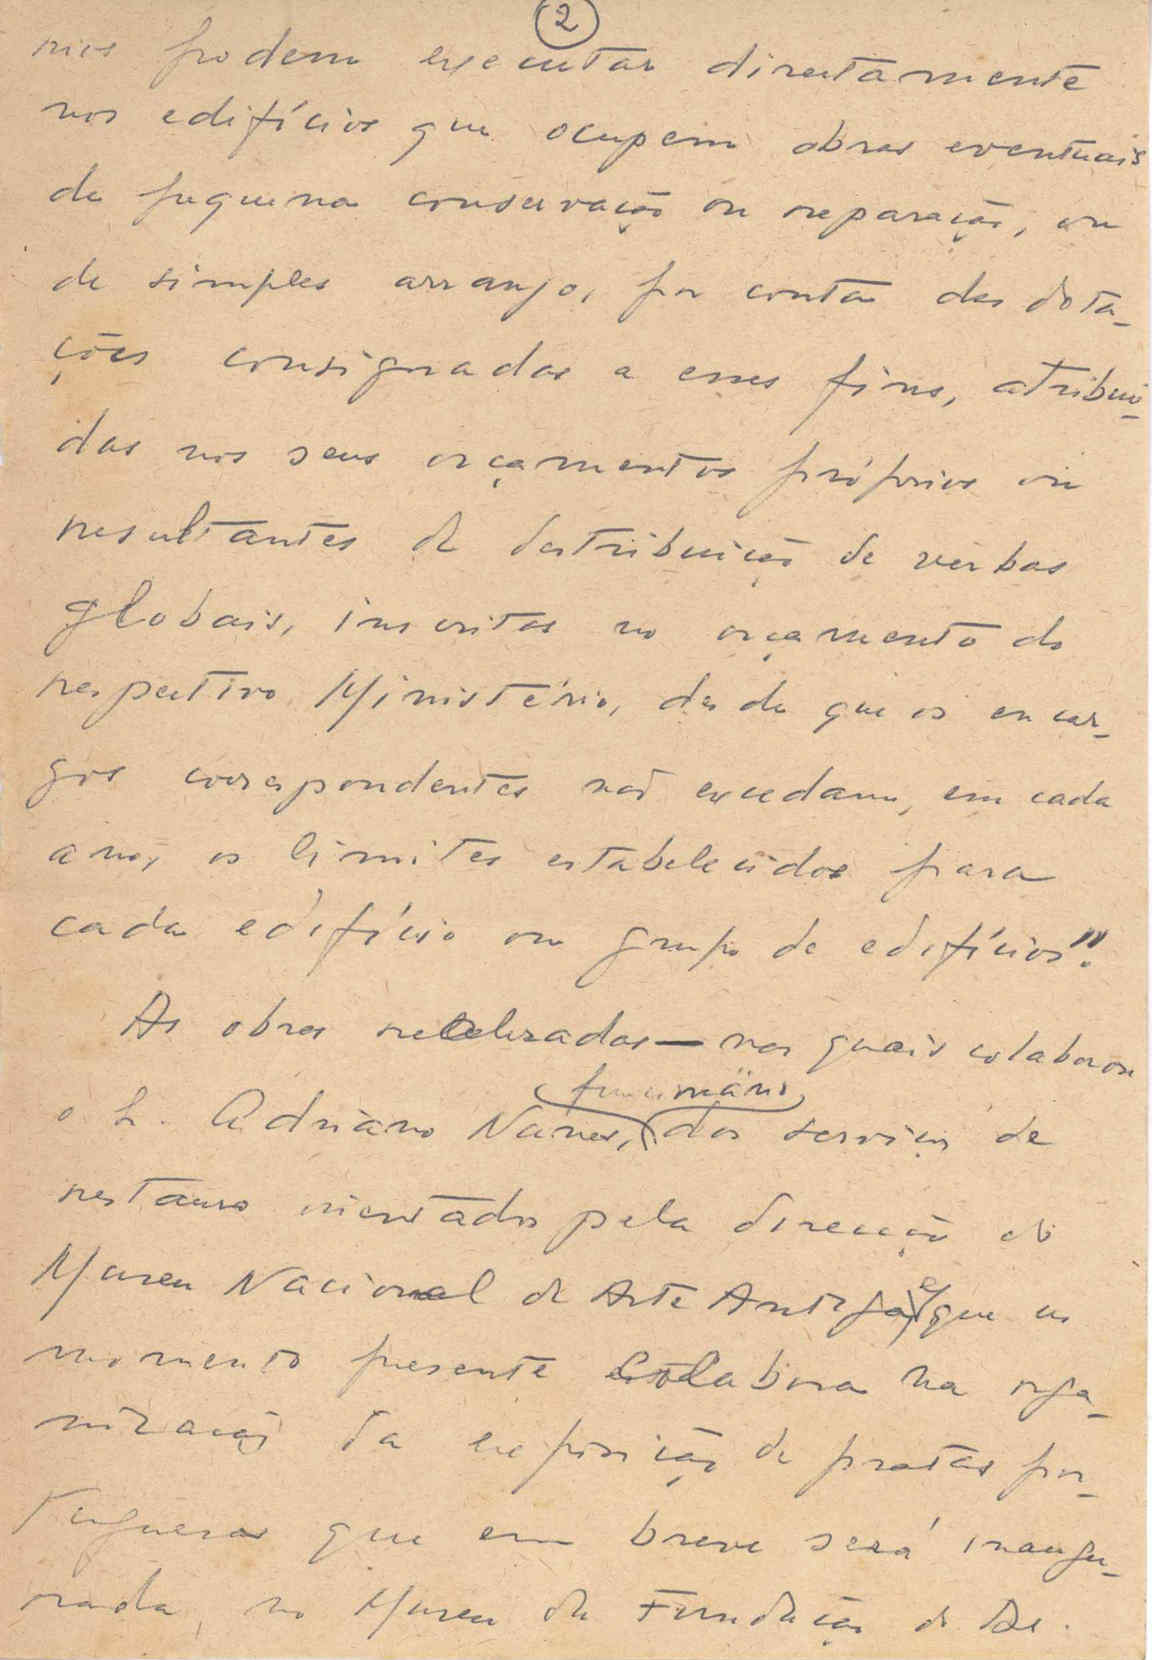 2
rios podem executar directamente
nos edifícios que ocupem obras eventuais
de pequena conservação ou reparação, ou
de simples arranjo, por conta das dota-
ções consignadas a esses fins, atribuí-
das nos seus orçamentos próprios ou
resultantes da distribuição de verbas
globais, inscritas no orçamento do
respectivo Ministério, desde que os encar-
gos correspondentes não excedam, em cada
ano, os limites estabelecidos para
cada edifício ou grupo de edifícios".
As obras — nas quais colaborou
funcionário
o Sr. Adriano Nunes, dos serviços de
restauro orientados pela direcção do
Museu Nacional de Arte Antiga e que no
momento presente colabora na orga-
nização da exposição de pratas por-
tuguesas que em breve será inaugu-
rada, no Museu da Fundação de